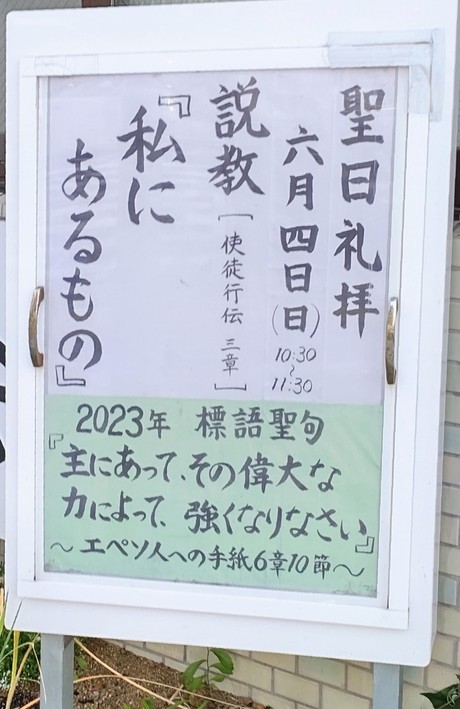 聖日礼拝
六月四日(日)
10:30
~
11:30
説教[使徒行伝 三章]
『私に
あるもの』
2023年 標語聖句
『主にあって、その偉大な
力によって、強くなりなさい』
～エペソ人への手紙6章10節～